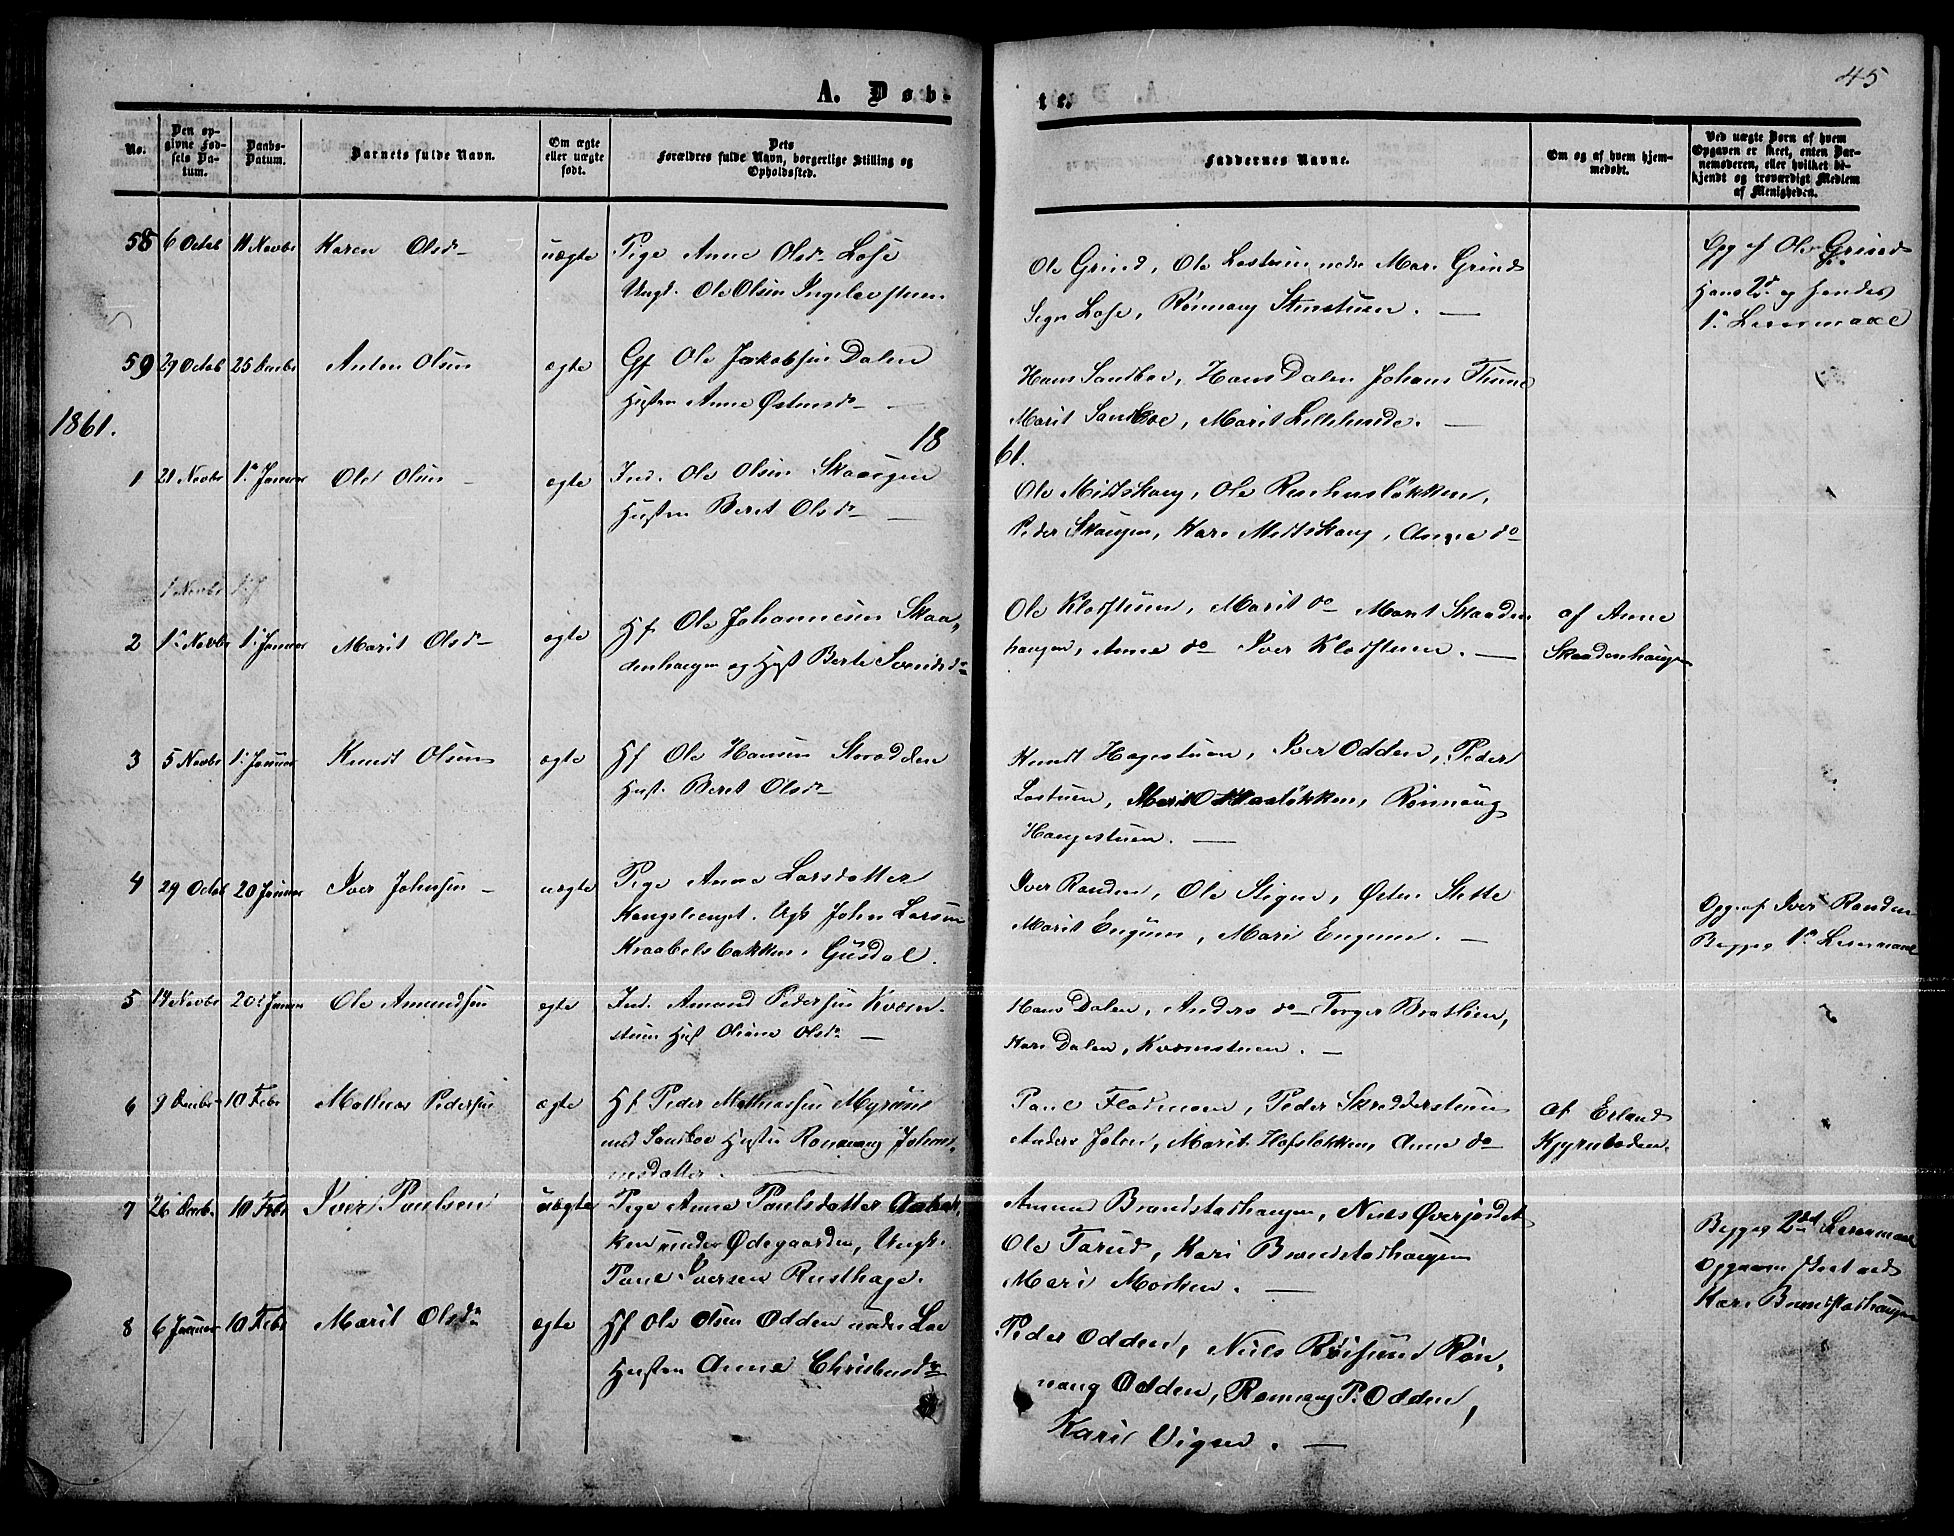 45
A. Døb-
te.
No.
Den op-
givne Fød-
sels Da-
tum.
Daabs-
Datum.
Barnets fulde Navn.
Om ægte
eller uægte
født.
Dets
Forældres fulde Navn, borgerlige Stilling og
Opholdssted.
Faddernes Navne.
Om og af hvem hjem-
medøbt.
Ved uægte Børn af hvem
Opgaven er skeet, enten Bar-
nemoderen, eller hvilket be-
kjendt og troværdigt Medlem
af Menigheden.
58 6 Octob 11 Novbr Karen Olsdr uægte Pige Anne Olsdr Lose
Ungk. Ole Olsen
Ole Grind, Ole Mari Grind
Lose, Rønnaug Stenstuen.
Opg af Ole Grind
Hans 2d og hendes
1ste Leiermaal
59 29 Octob 25 Decbr Anton Olsen ægte Gf Ole Jakobsen Dalen
Hustru Anne Østensdr
Hans Sandboe, Hans Dalen Johans
Marit Sandboe, Marit Lillehende.
1861.
18
61.
1 21 Novbr 1. Januar Ole Olsen ægte Ind. Ole Olsen Skougen
Hustru Beret Olsdr
Ole Midtskoug, Ole
Peder Skougen, Kari Midtskoug, Anne do
1 Novbr
2 1. Novbr 1. Januar Marit Olsdr ægte Hf Ole Johannesen Skaa-
denhaugen og Hust Berte Svendsdr
Ole Klosstuen, Marit do Marit Skaaden
haugen, Anne do Iver Klosstuen.
af Anne
Skaadenhaugen
3 5 Novbr 1. Januar Knudt Olsen ægte Hf Ole Hansen
Hust. Beret Olsdr
Knudt Hagestuen, Iver Odden, Peder
Lostuen, Marit Rønnaug
Haugestuen.
4 29 Octob 20 Januar Iver Johnsen uægte Pige Anne Larsdatter
Ugk John Larsen
Kraabelsbakken, Gusdal.
Iver Randen, Ole Stigen, Østen Slette
Marit Engum, Mari Engum.
Opg. af Iver Randen
Begges 1ste Leiermaal
5 14 Novbr 20 Januar Ole Amundsen ægte Ind. Amund Pedersen Kværn-
stuen Hust Oliane Olsdr
Hans Dalen, Anders do Torger Bratlien,
Kari Dalen, Kværnstuen.
6 9 Decbr 10 Febr Mathias Pedersen ægte Hf Peder Mathiassen Myrom
ned Sandboe Hustru Rønnaug Johan-
nesdatter.
Paul Flatmoen, Peder Skrædderstuen
Anders Marit Hofsløkken, Anne do
af Erland
7 26 Decbr. 10 Febr Iver Paulsen uægte Pige Anne Paulsdatter
ken under Ødegaarden, Ungk.
Paul Iversen Rusthage.
Brandstadhaugen, Niels Øverjordet
Ole Forud, Kari Brandstadhaugen
Mari Morken.
Begges 2det Leiermaal
Opgaven skeet ved
Kari Brandstadhaugen
8 6 Januar 10 Febr Marit Olsdr ægte Hf Ole Olsen Odden under Loe
Hustru Anne Christensdr
Peder Odden, Niels Røn-
naug Odden, Rønnaug P. Odden,
Kari Vigen.